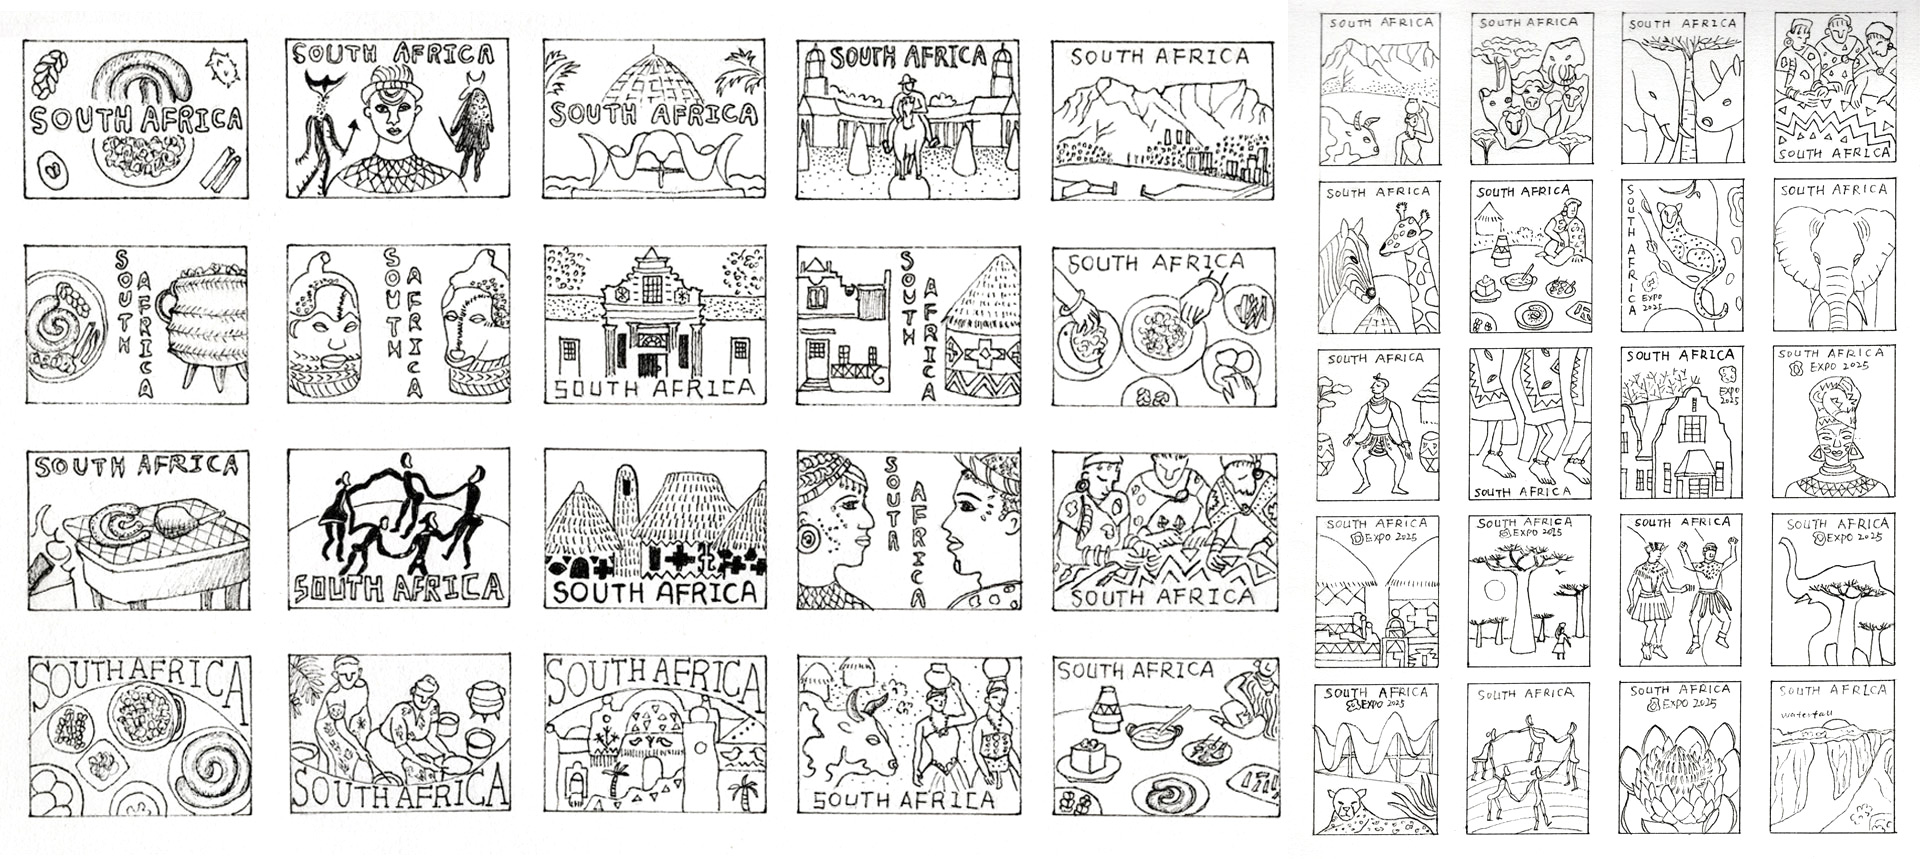 SOUTH AFRICA
SOUTH AFRICA
SOUTH AFRICA
SOUTH AFRICA
SOUTH AFRICA
SOUTH
AFRICA
SOUTH
AFRICA
SOUTH AFRICA
SOUTH
AFRICA
SOUTH AFRICA
SOUTH AFRICA
SOUTH AFRICA
SOUTH AFRICA
SOUTH
AFRICA
SOUTH AFRICA
SOUTH AFRICA
SOUTH AFRICA
SOUTH AFRICA
SOUTH AFRICA
SOUTH AFRICA
SOUTH AFRICA
SOUTH AFRICA
SOUTH AFRICA
SOUTH AFRICA
SOUTH AFRICA
SOUTH AFRICA
SOUTH AFRICA
EXPO
2025
SOUTH AFRICA
SOUTH AFRICA
SOUTH AFRICA
SOUTH AFRICA
EXPO
2025
SOUTH AFRICA
EXPO 2025
SOUTH AFRICA
EXPO 2025
SOUTH AFRICA
EXPO 2025
SOUTH AFRICA
SOUTH AFRICA
EXPO 2025
SOUTH AFRICA
EXPO 2025
SOUTH AFRICA
SOUTH AFRICA
EXPO 2025
SOUTH AFRICA
waterfall